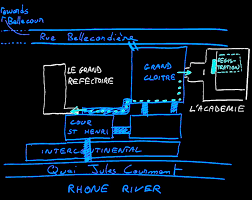 towards
Bellecour
Rue Bellecordière
LE GRAND
REFECTOIRE
GRAND
CLOITRE
REGIS-
TRATION
L'ACADEMIE
COUR
ST HENRI
INTERCONTINENTAL
Quai Jules Courmont
RHONE RIVER